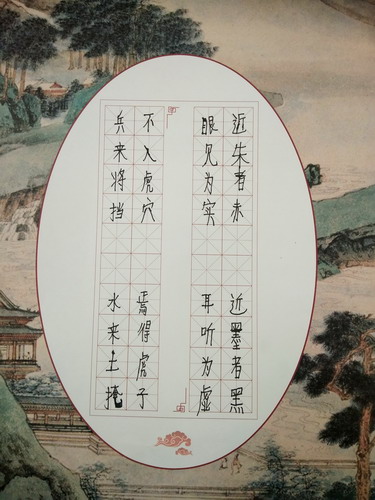 近朱者赤 近墨者黑
眼见为实 耳听为虚
不入虎穴 焉得虎子
兵来将挡 水来土掩